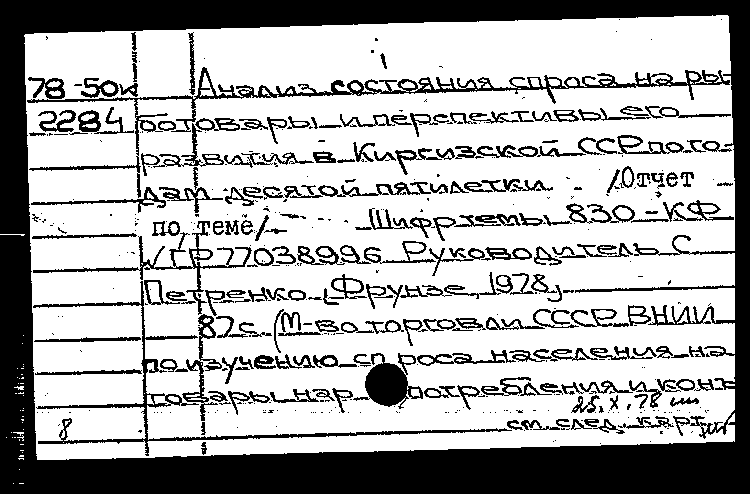 78-50к Анализ состояния спроса на ры
2284 ботовары и перспективы его
развития в Киргизской ССР по го-
дам десятой пятилетки. /Отчет
по теме/.- Шифр темы 830-КФ
√ГР77038996 Руководитель С
Петренко, Фрунзе, 1978,
87с. (М-во торговли СССР. ВНИИ
по изучению спроса населения на
товары нар потребления и конъ
25.X.78
8 см. след. карт